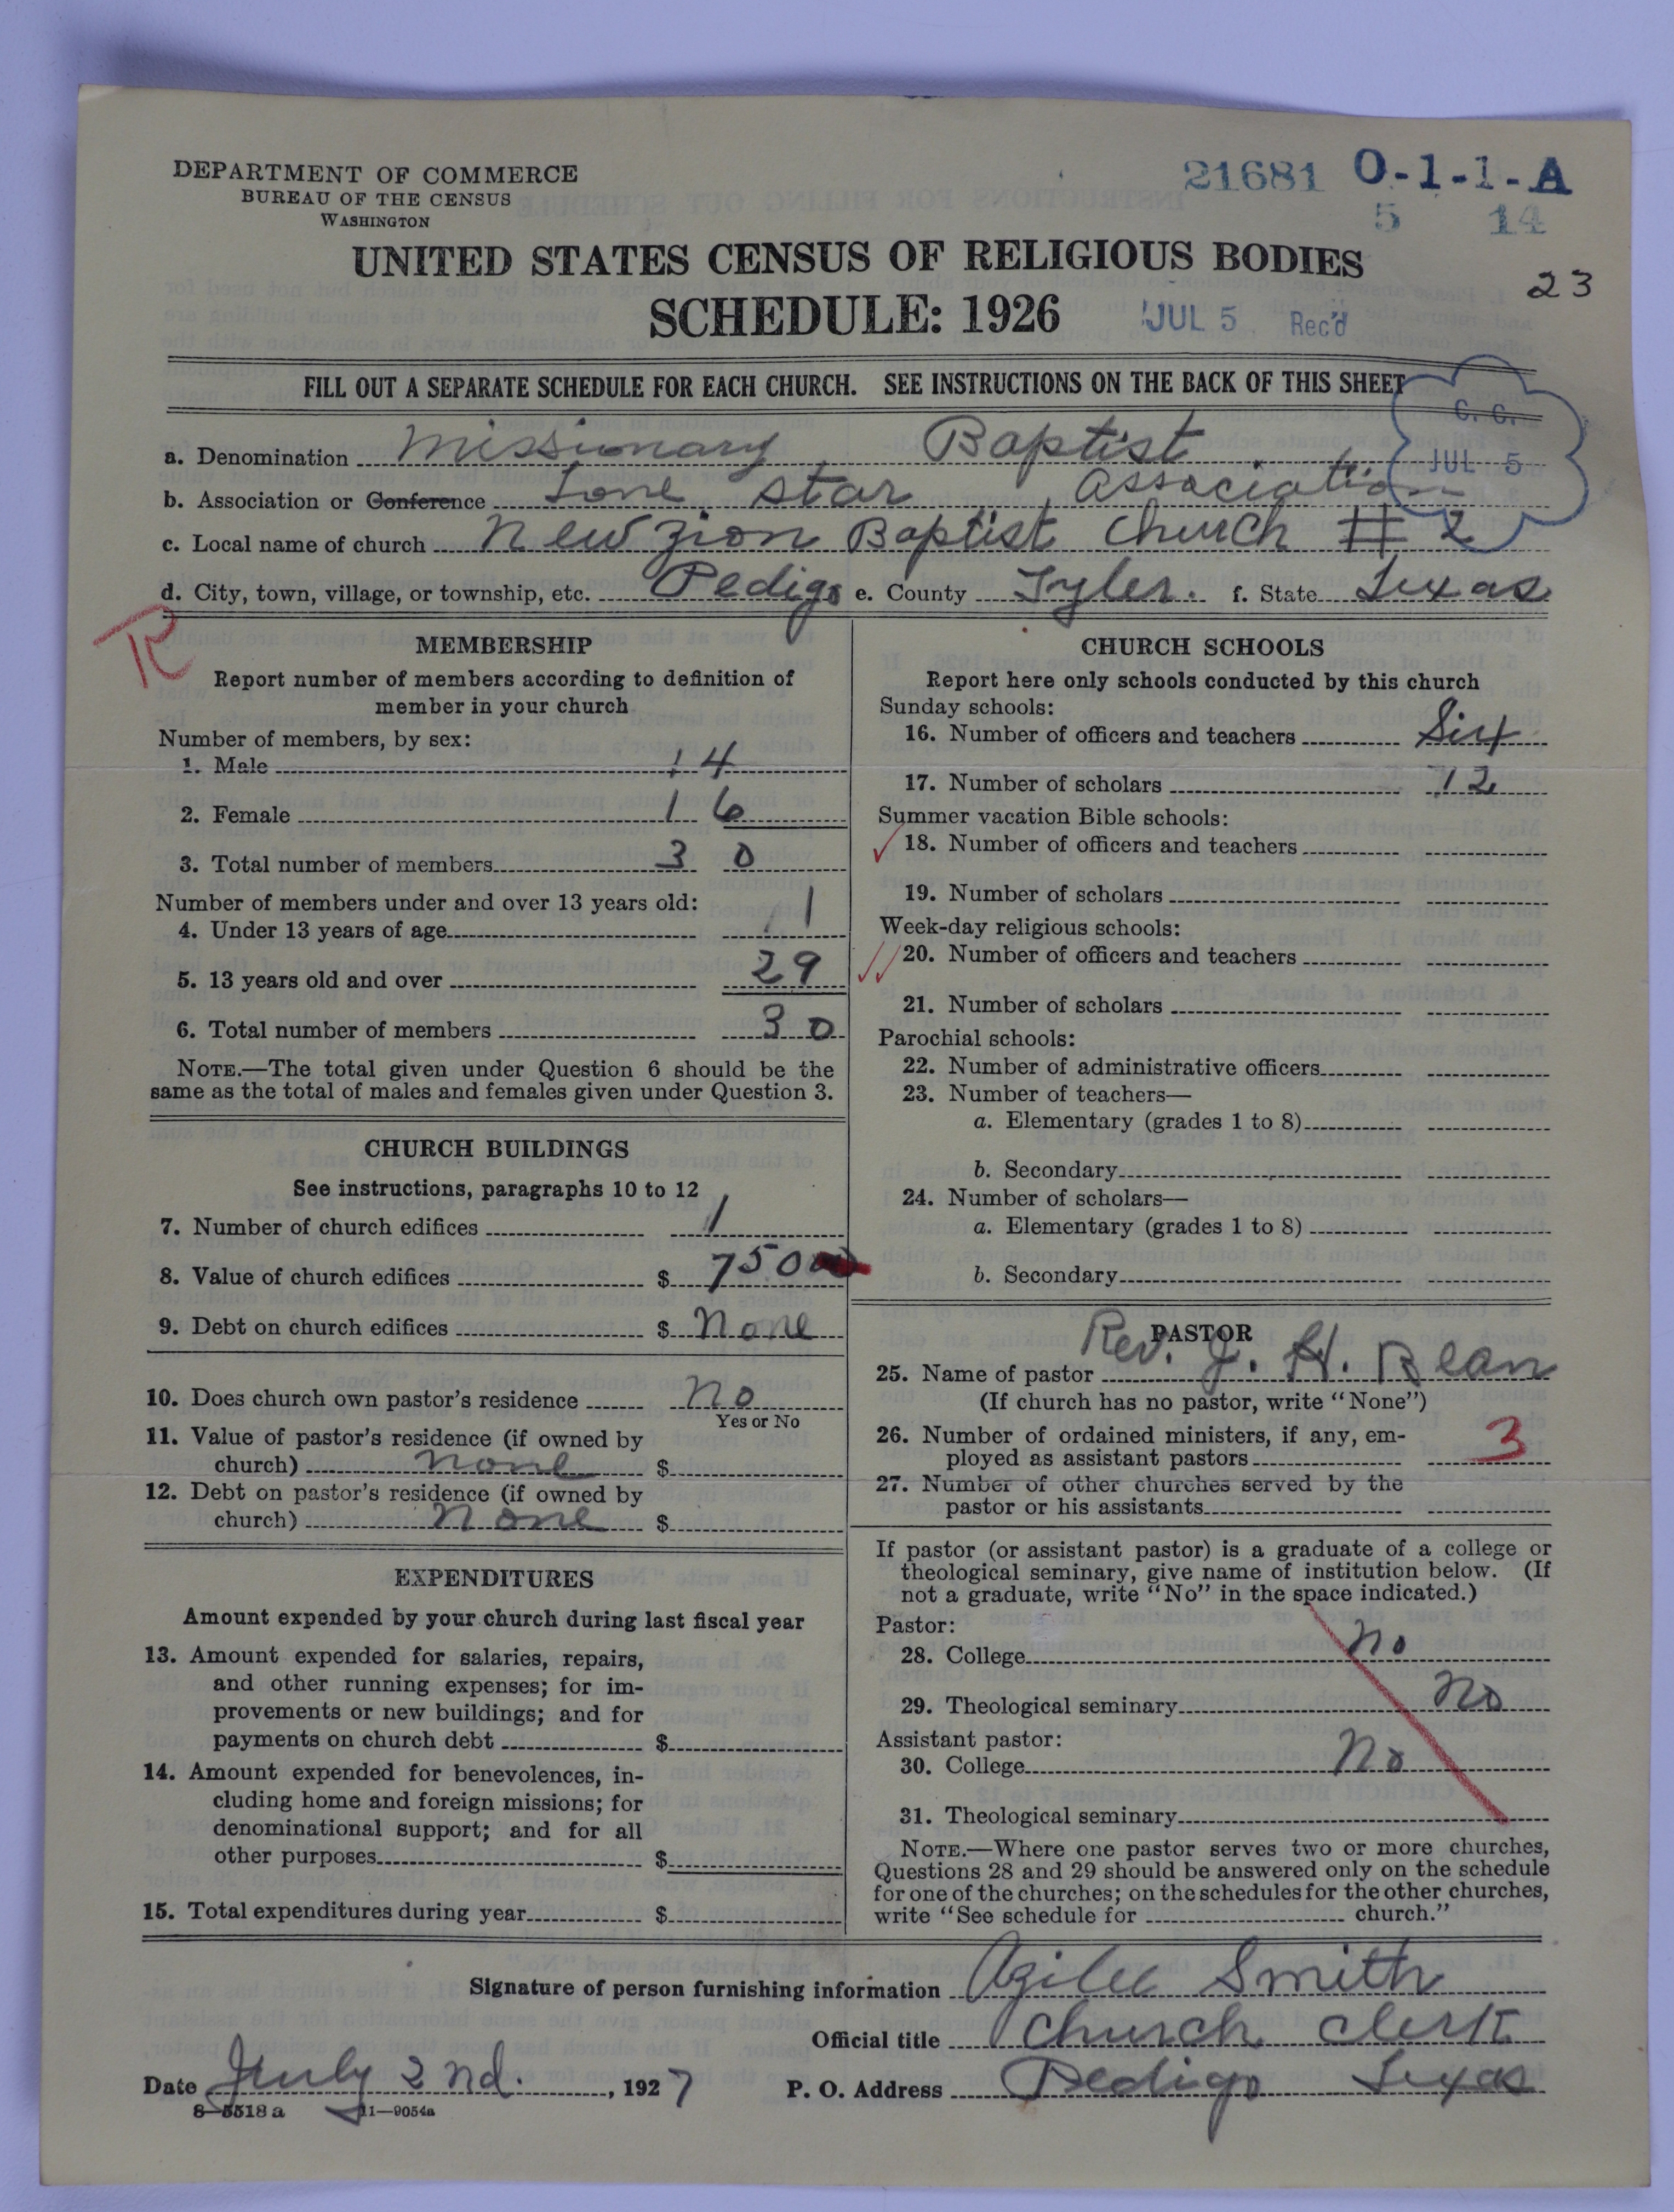 DEPARTMENT OF COMMERCE
BUREAU OF THE CENSUS
WASHINGTON
21681 O-1-1-A
5 14
UNITED STATES CENSUS OF RELIGIOUS BODIES
23
SCHEDULE: 1926
JUL 5 Rec'd
FILL OUT A SEPARATE SCHEDULE FOR EACH CHURCH. SEE INSTRUCTIONS ON THE BACK OF THIS SHEET
C. C.
JUL 5
a. Denomination Missionary Baptist
b. Association or Conference Lone Star Association
c. Local name of church New Zion Baptist Church # 2
d. City, town, village, or township, etc. Pedigo e. County Tyler. f. State Texas
R
MEMBERSHIP
Report number of members according to definition of
member in your church
Number of members, by sex:
1. Male 14
2. Female 16
3. Total number of members 30
Number of members under and over 13 years old:
4. Under 13 years of age 1
5. 13 years old and over 29
6. Total number of members 30
NOTE.—The total given under Question 6 should be the
same as the total of males and females given under Question 3.
CHURCH BUILDINGS
See instructions, paragraphs 10 to 12
7. Number of church edifices 1
8. Value of church edifices $ 750
9. Debt on church edifices $ None
10. Does church own pastor's residence No
Yes or No
11. Value of pastor's residence (if owned by
church) none $
12. Debt on pastor's residence (if owned by
church) none $
EXPENDITURES
Amount expended by your church during last fiscal year
13. Amount expended for salaries, repairs,
and other running expenses; for im-
provements or new buildings; and for
payments on church debt $
14. Amount expended for benevolences, in-
cluding home and foreign missions; for
denominational support; and for all
other purposes $
15. Total expenditures during year $
CHURCH SCHOOLS
Report here only schools conducted by this church
Sunday schools:
16. Number of officers and teachers Six
17. Number of scholars 12
Summer vacation Bible schools:
18. Number of officers and teachers
19. Number of scholars
Week-day religious schools:
20. Number of officers and teachers
21. Number of scholars
Parochial schools:
22. Number of administrative officers
23. Number of teachers—
a. Elementary (grades 1 to 8)
b. Secondary
24. Number of scholars—
a. Elementary (grades 1 to 8)
b. Secondary
PASTOR
25. Name of pastor Rev. J. H. Bean
(If church has no pastor, write "None")
26. Number of ordained ministers, if any, em-
ployed as assistant pastors 3
27. Number of other churches served by the
pastor or his assistants
If pastor (or assistant pastor) is a graduate of a college or
theological seminary, give name of institution below. (If
not a graduate, write "No" in the space indicated.)
Pastor:
28. College No
29. Theological seminary No
Assistant pastor:
30. College No
31. Theological seminary
NOTE.—Where one pastor serves two or more churches,
Questions 28 and 29 should be answered only on the schedule
for one of the churches; on the schedules for the other churches,
write "See schedule for church."
Signature of person furnishing information Azilee Smith
Official title Church Clerk
Date July 2nd., 1927 P. O. Address Pedigo Texas
8—5518 a 11—9054a